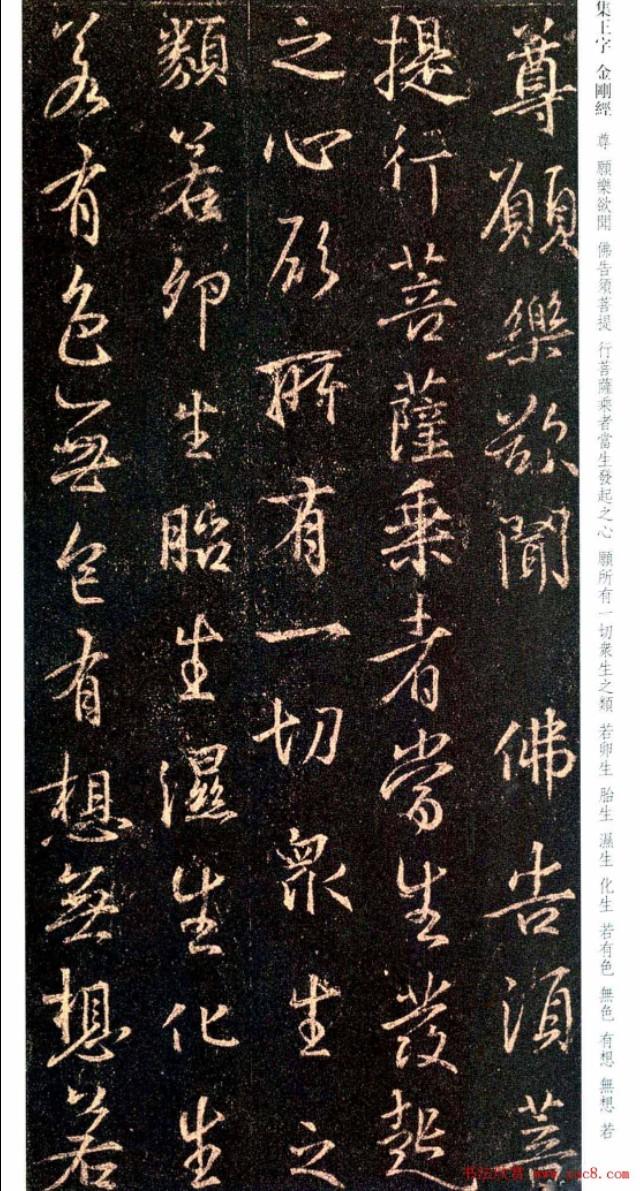 集王字 金剛經 尊 願樂欲聞 佛告須菩提 行菩薩乘者當生發起之心 願所有一切衆生之類 若卵生 胎生 濕生 化生 若有色 無色 有想 無想 若
尊願樂欲聞 佛告須菩
提行菩薩乘者當生發起
之心願所有一切眾生之
類若卵生胎生濕生化生
若有色無色有想無想若
书法欣赏 www.yac8.com